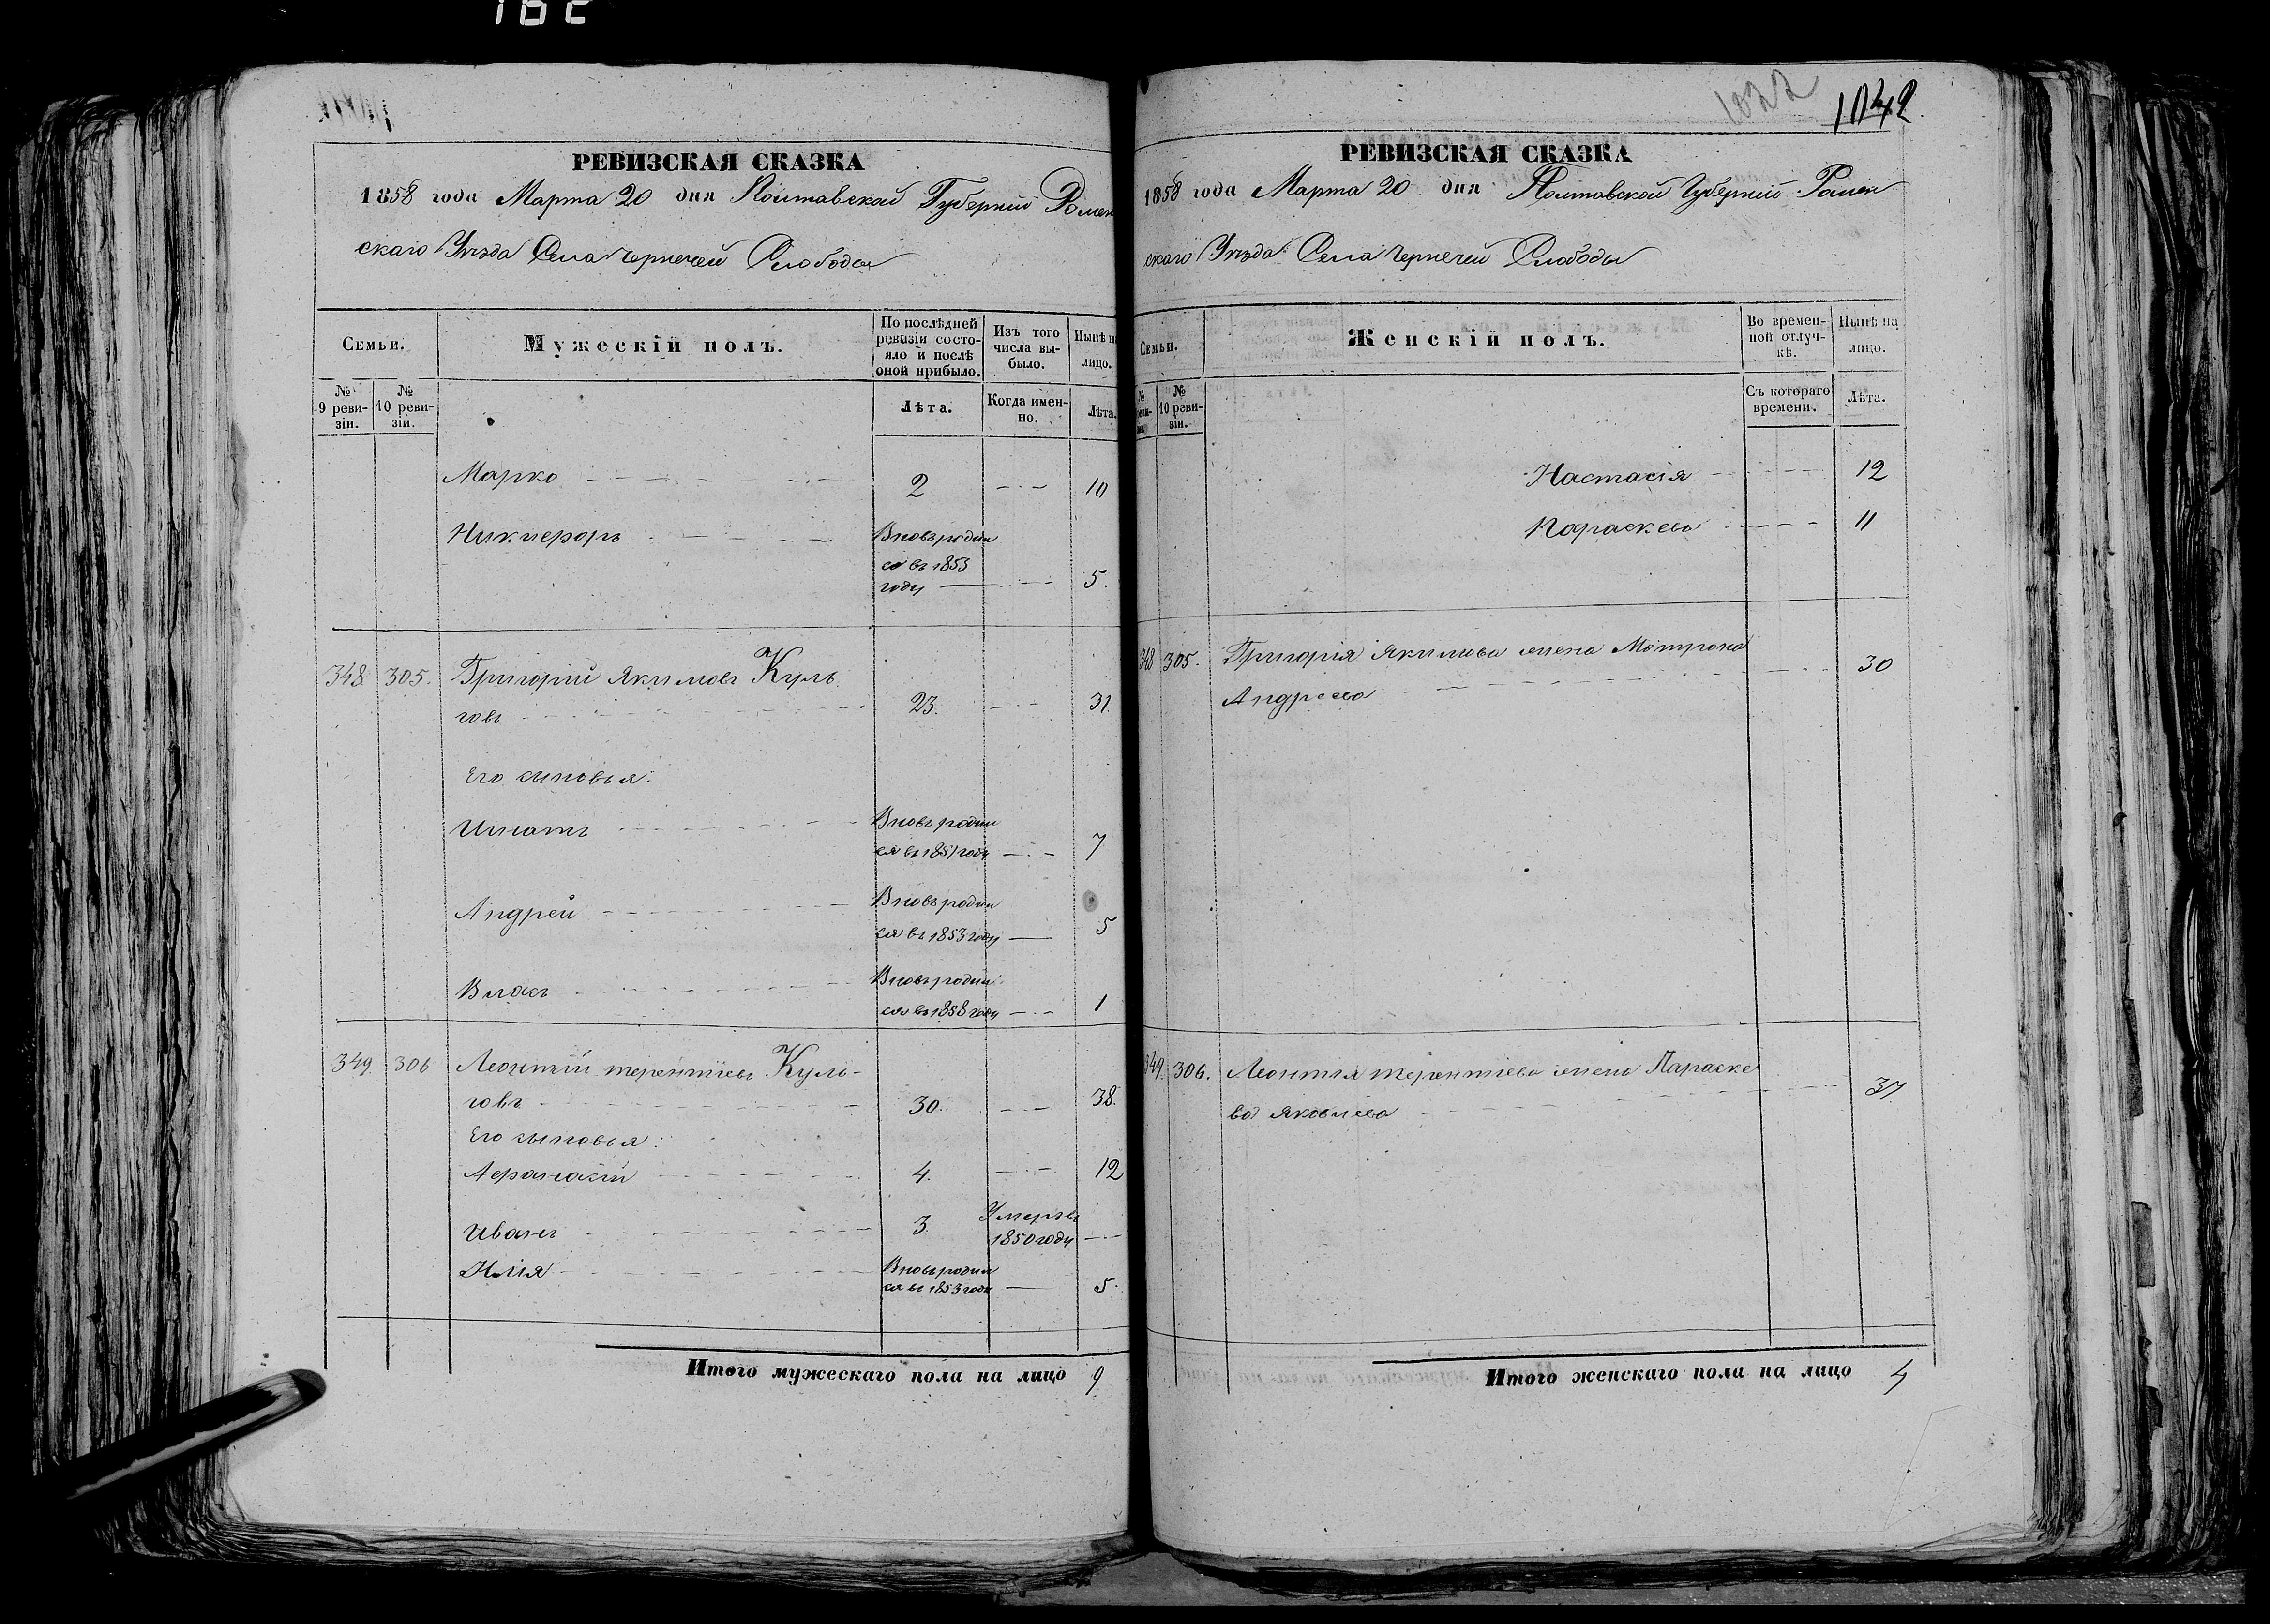 1022
1042
РЕВИЗСКАЯ СКАЗКА
1858 года Марта 20 дня Полтавской Губернии Ромен
скаго Уѣзда Села Чернечей Слободы
Семьи.
Мужескій полъ.
По послѣдней ревизіи состояло и послѣ оной прибыло.
Изъ того числа выбыло.
Нынѣ на лицо.
№ 9 ревизіи.
№ 10 ревизіи.
Лѣта.
Когда именно.
Лѣта.
Марко 2 10
Никифоръ Вновь родил
ся въ 1853
году 5.
348 305. Григорий Якимовъ Куль
говъ 23. 31.
Его сыновья:
Игнатъ Вновь родил
ся въ 1851 году 7
Андрей Вновь родил
ся въ 1853 году 5
Власъ Вновь родил
ся въ 1858 году 1
349 306 Леонтій терентіевъ Куль-
говъ 30. 38.
Его сыновья:
Афанасій 4. 12
Иванъ 3. Умеръ въ
1850 году
Илія Вновь родил
ся въ 1853 году 5.
Итого мужескаго пола на лицо 9
РЕВИЗСКАЯ СКАЗКА
1858 года Марта 20 дня Полтавской Губерніи Ромен
скаго Уѣзда Села Чернечей Слободы
Семьи.
Женскій полъ.
Во временной отлучкѣ.
Нынѣ на лицо.
№ 10 ревизіи.
Съ котораго времени.
Лѣта.
Настасія 12
Параскева 11
348 305. Григорія Якимова жена Мотрона
Андреева 30
349. 306. Леонтія терентіева жена Параске
ва Яковлева 37
Итого женскаго пола на лицо 4